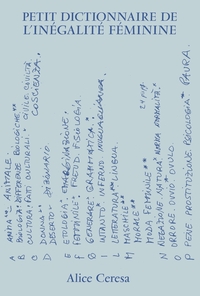 PETIT DICTIONNAIRE DE
L'INÉGALITÉ FÉMININE
A ANIMA* ANIMALE*
B BIOLOGIA: DIFFERENZE BIOLOGICHE**
C CULTURA: FATTI CULTURALI. CIVILTÀ
COSCIENZA.
D DONNA**
DESERTO DIZIONARIO
E ETOLOGIA. EMARGINAZIONE.
F FEMMINILE. FREUD. FISIOLOGIA
G GENERARE* GRAMMATICA.*
I INTUITO* INFERNO INUGUAGLIANZA
L LETTERATURA** LINGUA
M MASCHILE**
MORALE**
MODA FEMMINILE**
N NEGAZIONE NATURA* NORMA NORMALITÀ*
O ORRORE OVVIO OVULO.
P PENE PROSTITUZIONE PSICOLOGIA* PAURA.
Alice Ceresa